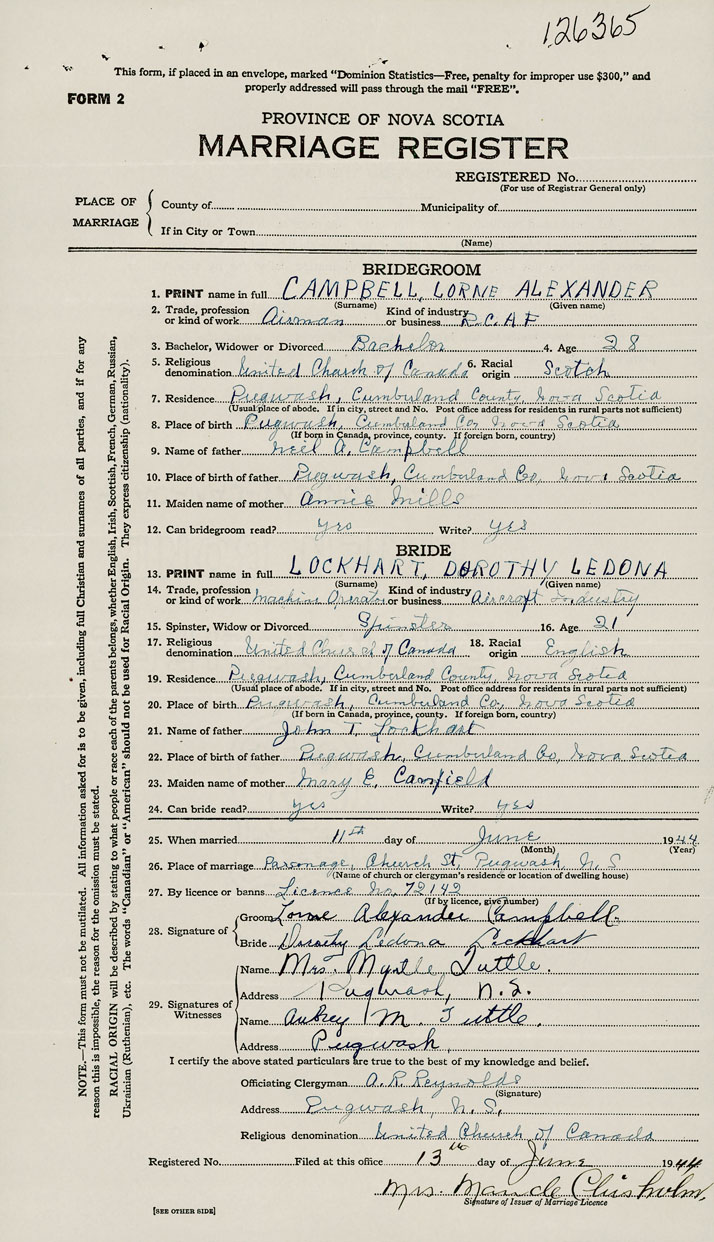 126365
This form, if placed in an envelope, marked "Dominion Statistics—Free, penalty for improper use $300," and
properly addressed will pass through the mail "FREE".
FORM 2
PROVINCE OF NOVA SCOTIA
MARRIAGE REGISTER
REGISTERED No.
(For use of Registrar General only)
PLACE OF MARRIAGE
County of Municipality of
If in City or Town
(Name)
BRIDEGROOM
1. PRINT name in full CAMPBELL, LORNE ALEXANDER
(Surname) (Given name)
2. Trade, profession or kind of work Airman Kind of industry or business R.C.A.F
3. Bachelor, Widower or Divorced Bachelor 4. Age 28
5. Religious denomination United Church of Canada 6. Racial origin Scotch
7. Residence Pugwash, Cumberland County, Nova Scotia
(Usual place of abode. If in city, street and No. Post office address for residents in rural parts not sufficient)
8. Place of birth Pugwash, Cumberland Co, Nova Scotia
(If born in Canada, province, county. If foreign born, country)
9. Name of father Neil A. Campbell
10. Place of birth of father Pugwash, Cumberland Co, Nova Scotia
11. Maiden name of mother Annie Mills
12. Can bridegroom read? yes Write? yes
BRIDE
13. PRINT name in full LOCKHART, DOROTHY LEDONA
(Surname) (Given name)
14. Trade, profession or kind of work Machine Operator Kind of industry or business Aircraft Industry
15. Spinster, Widow or Divorced Spinster 16. Age 21
17. Religious denomination United Church of Canada 18. Racial origin English
19. Residence Pugwash, Cumberland County, Nova Scotia
(Usual place of abode. If in city, street and No. Post office address for residents in rural parts not sufficient)
20. Place of birth Pugwash, Cumberland Co, Nova Scotia
(If born in Canada, province, county. If foreign born, country)
21. Name of father John T. Lockhart
22. Place of birth of father Pugwash, Cumberland Co, Nova Scotia
23. Maiden name of mother Mary E. Canfield
24. Can bride read? yes Write? yes
25. When married 11th day of June 1944
(Month) (Year)
26. Place of marriage Parsonage, Church St, Pugwash N.S
(Name of church or clergyman's residence or location of dwelling house)
27. By licence or banns Licence No. 72142
(If by licence, give number)
28. Signature of
Groom Lorne Alexander Campbell
Bride Dorothy Ledona Lockhart
29. Signatures of Witnesses
Name Mrs. Myrtle Tuttle.
Address Pugwash, N.S.
Name Aubrey M. Tuttle.
Address Pugwash
I certify the above stated particulars are true to the best of my knowledge and belief.
Officiating Clergyman A. R. Reynolds
(Signature)
Address Pugwash, N.S.
Religious denomination United Church of Canada
Registered No. Filed at this office 13th day of June 1944
Mrs. Maude Chisholm.
Signature of Issuer of Marriage Licence
[SEE OTHER SIDE]
NOTE.—This form must not be mutilated. All information asked for is to be given, including full Christian and surnames of all parties, and if for any
reason this is impossible, the reason for the omission must be stated.
RACIAL ORIGIN will be described by stating to what people or race each of the parents belongs, whether English, Irish, Scottish, French, German, Russian,
Ukrainian (Ruthenian), etc. The words "Canadian" or "American" should not be used for Racial Origin. They express citizenship (nationality).